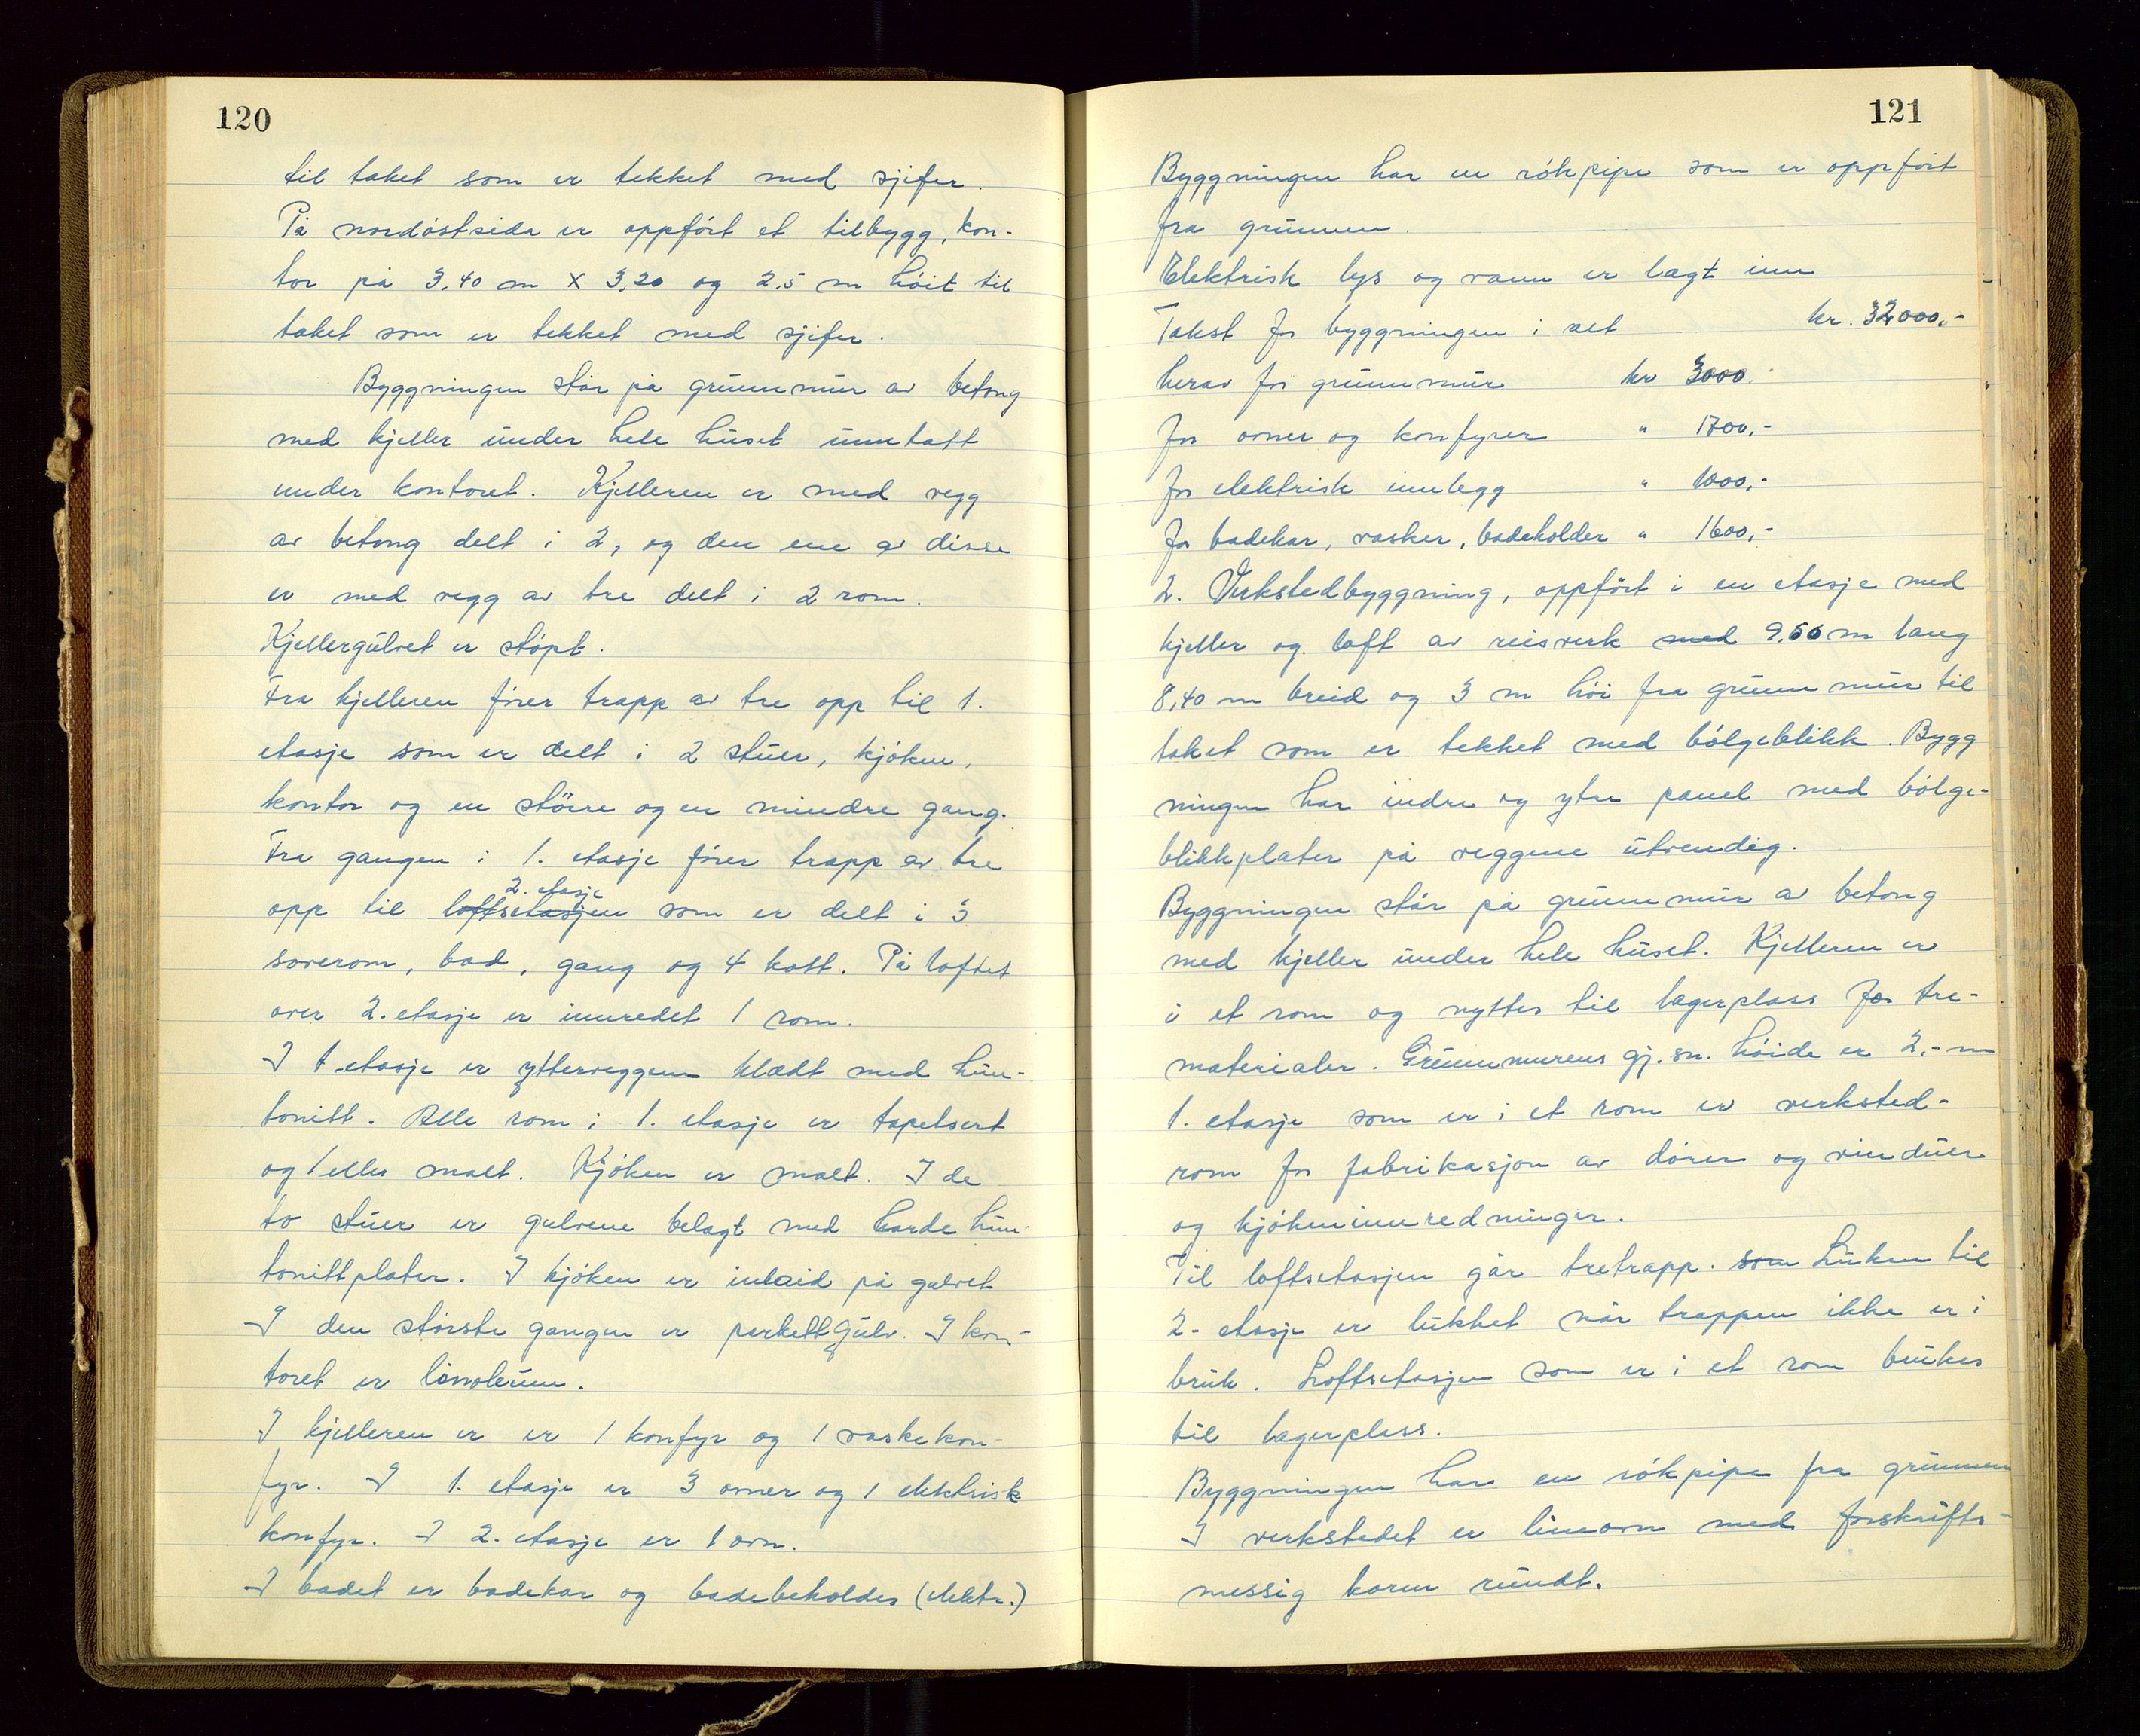 120
til taket som er tekket med sjifer.
På nordóstsida er oppfórt et tilbygg, kon-
tor på 3.40 m x 3.20 og 2.5 m hóit til
taket som er tekket med sjifer.
Byggningen står på grunnmur av betong
med kjeller under hele huset unntatt
under kontoret. Kjelleren er med vegg
av betong delt i 2, og den ene av disse
er med vegg av tre delt i 2 rom.
Kjellergulvet er stópt.
Fra kjelleren fórer trapp av tre opp til 1.
etasje som er delt i 2 stuer, kjóken,
kontor og en större og en mindre gang.
Fra gangen i 1. etasje fórer trapp av tre
2. etasje
opp til loftsetasjen som er delt i 3
soverom, bad, gang og 4 kott. På loftet
over 2. etasje er innredet 1 rom.
I 1 etasje er ytterveggene klædt med hun-
tonitt. Alle rom i 1. etasje er tapetsert
og/eller malt. Kjóken er malt. I de
to stuer er gulvene belagt med harde hun-
tonittplater. I kjóken er inlaid på gulvet
I den störste gangen er parkettgulv. I kon-
toret er linoleum.
I kjelleren er er 1 konfyr og 1 vaskekon-
fyr. I 1. etasje er 3 ovner og 1 elektrisk
konfyr. I 2. etasje er 1 ovn.
I badet er badekar og badebeholder (elektr.)
121
Byggningen har en rókpipe som er oppfórt
fra grunnen.
Elektrisk lys og vann er lagt inn
Takst for byggningen i alt kr. 32000,-
herav for grunnmur kr 3000.
for ovner og konfyrer " 1700,-
for elektrisk innlegg " 1000,-
for badekar, vasker, badeholder " 1600,-
2. Verkstedbyggning, oppfórt i en etasje med
kjeller og loft av reisverk med 9.60 m lang
8,40 m breid og 3 m hói fra grunnmur til
taket som er tekket med bólgeblikk. Bygg
ningen har indre og ytre panel med bólge-
blikkplater på veggene utvendig.
Byggningen står på grunnmur av betong
med kjeller under hele huset. Kjelleren er
i et rom og nyttes til lagerplass for tre-
materialer. Grunnmurens gj.sn. hóide er 2,- m
1. etasje som er i et rom er verksted-
rom for fabrikasjon av dórer og vinduer
og kjókeninnredninger.
Til loftsetasjen går tretrapp. som Luken til
2. etasje er lukket når trappen ikke er i
bruk. Loftsetasjen som er i et rom brukes
til lagerplass.
Byggningen har en rókpipe fra grunnen
I verkstedet er limovn med forskrifts-
messig karm rundt.